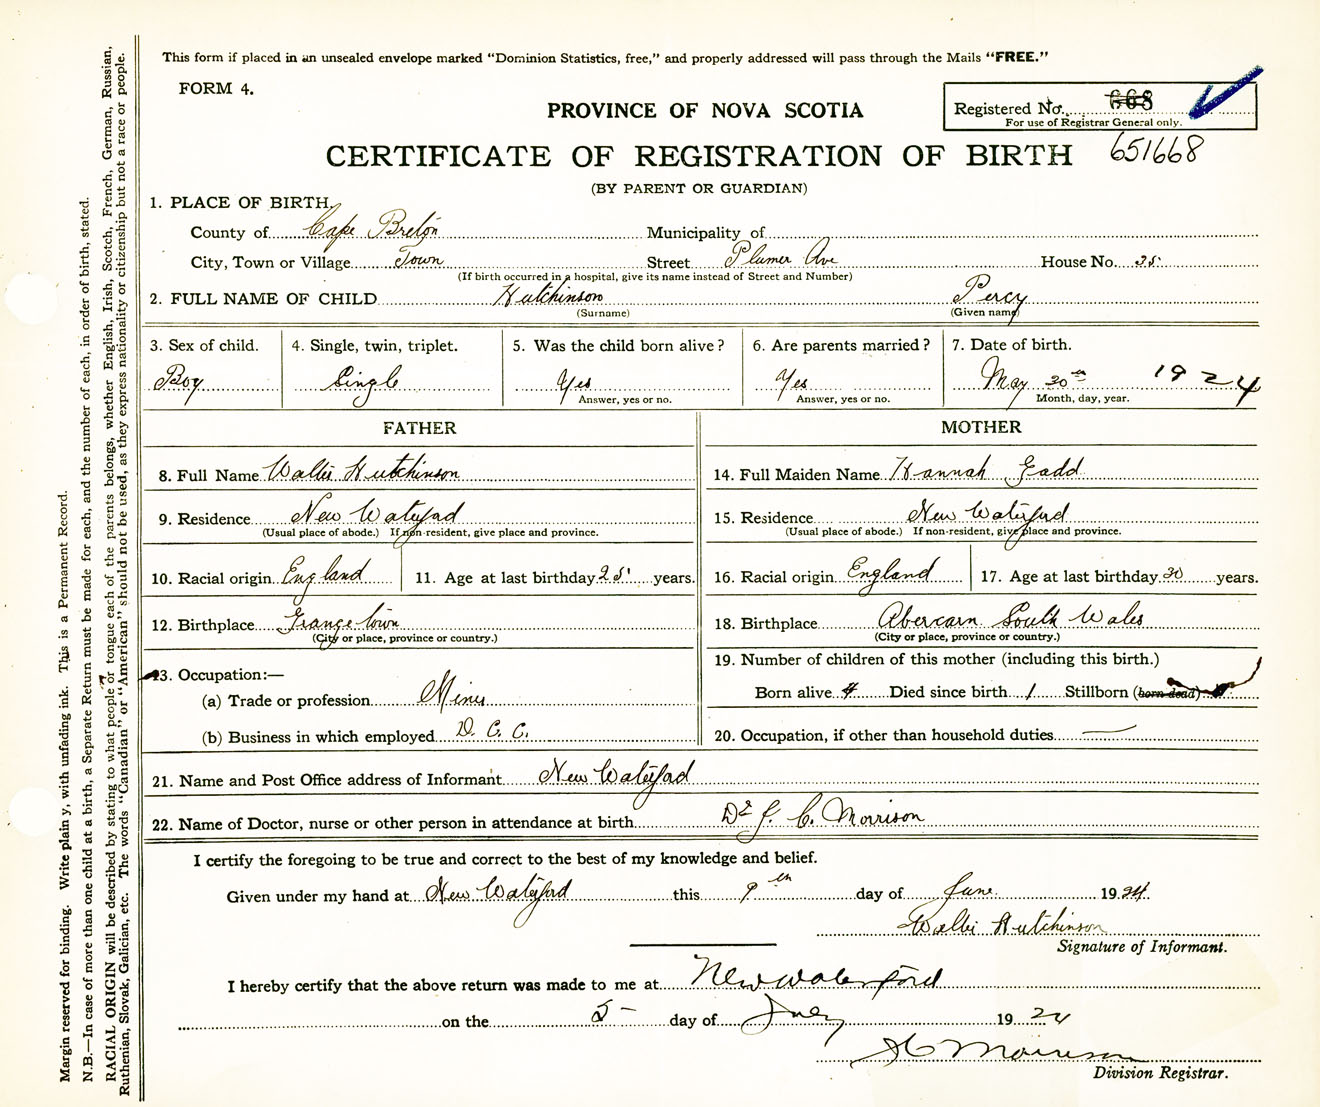 This form if placed in an unsealed envelope marked “Dominion Statistics, free,” and properly addressed will pass through the Mails “FREE.”
FORM 4.
Registered No. 668
For use of Registrar General only.
PROVINCE OF NOVA SCOTIA
CERTIFICATE OF REGISTRATION OF BIRTH 651668
(BY PARENT OR GUARDIAN)
1. PLACE OF BIRTH.
County of Cape Breton Municipality of
City, Town or Village Town Street Plumer Ave House No. 35
(If birth occurred in a hospital, give its name instead of Street and Number)
2. FULL NAME OF CHILD Hutchinson Percy
(Surname) (Given name)
3. Sex of child. 4. Single, twin, triplet. 5. Was the child born alive? 6. Are parents married? 7. Date of birth.
Boy Single Yes Yes May 30th 1924
Answer, yes or no. Answer, yes or no. Month, day, year.
FATHER MOTHER
8. Full Name Hutchinson 14. Full Maiden Name Hannah
9. Residence New Waterford 15. Residence New Waterford
(Usual place of abode.) If non-resident, give place and province. (Usual place of abode.) If non-resident, give place and province.
10. Racial origin England 11. Age at last birthday 25 years. 16. Racial origin England 17. Age at last birthday 30 years.
12. Birthplace Grangetown 18. Birthplace Abercarn South Wales
(City or place, province or country.) (City or place, province or country.)
13. Occupation:— 19. Number of children of this mother (including this birth.)
(a) Trade or profession Miner Born alive 4 Died since birth 1 Stillborn (born dead)
(b) Business in which employed D. C. C. 20. Occupation, if other than household duties —
21. Name and Post Office address of Informant New Waterford
22. Name of Doctor, nurse or other person in attendance at birth Dr J. C. Morrison
I certify the foregoing to be true and correct to the best of my knowledge and belief.
Given under my hand at New Waterford this 9th day of June 1924.
Hutchinson
Signature of Informant.
I hereby certify that the above return was made to me at New Waterford
on the 5- day of July 1924
Morrison
Division Registrar.
Margin reserved for binding. Write plainly, with unfading ink. This is a Permanent Record.
N.B.—In case of more than one child at a birth, a Separate Return must be made for each, and the number of each, in order of birth, stated.
RACIAL ORIGIN will be described by stating to what people or tongue each of the parents belongs, whether English, Irish, Scotch, French, German, Russian,
Ruthenian, Slovak, Galician, etc. The words “Canadian” or “American” should not be used, as they express nationality or citizenship but not a race or people.